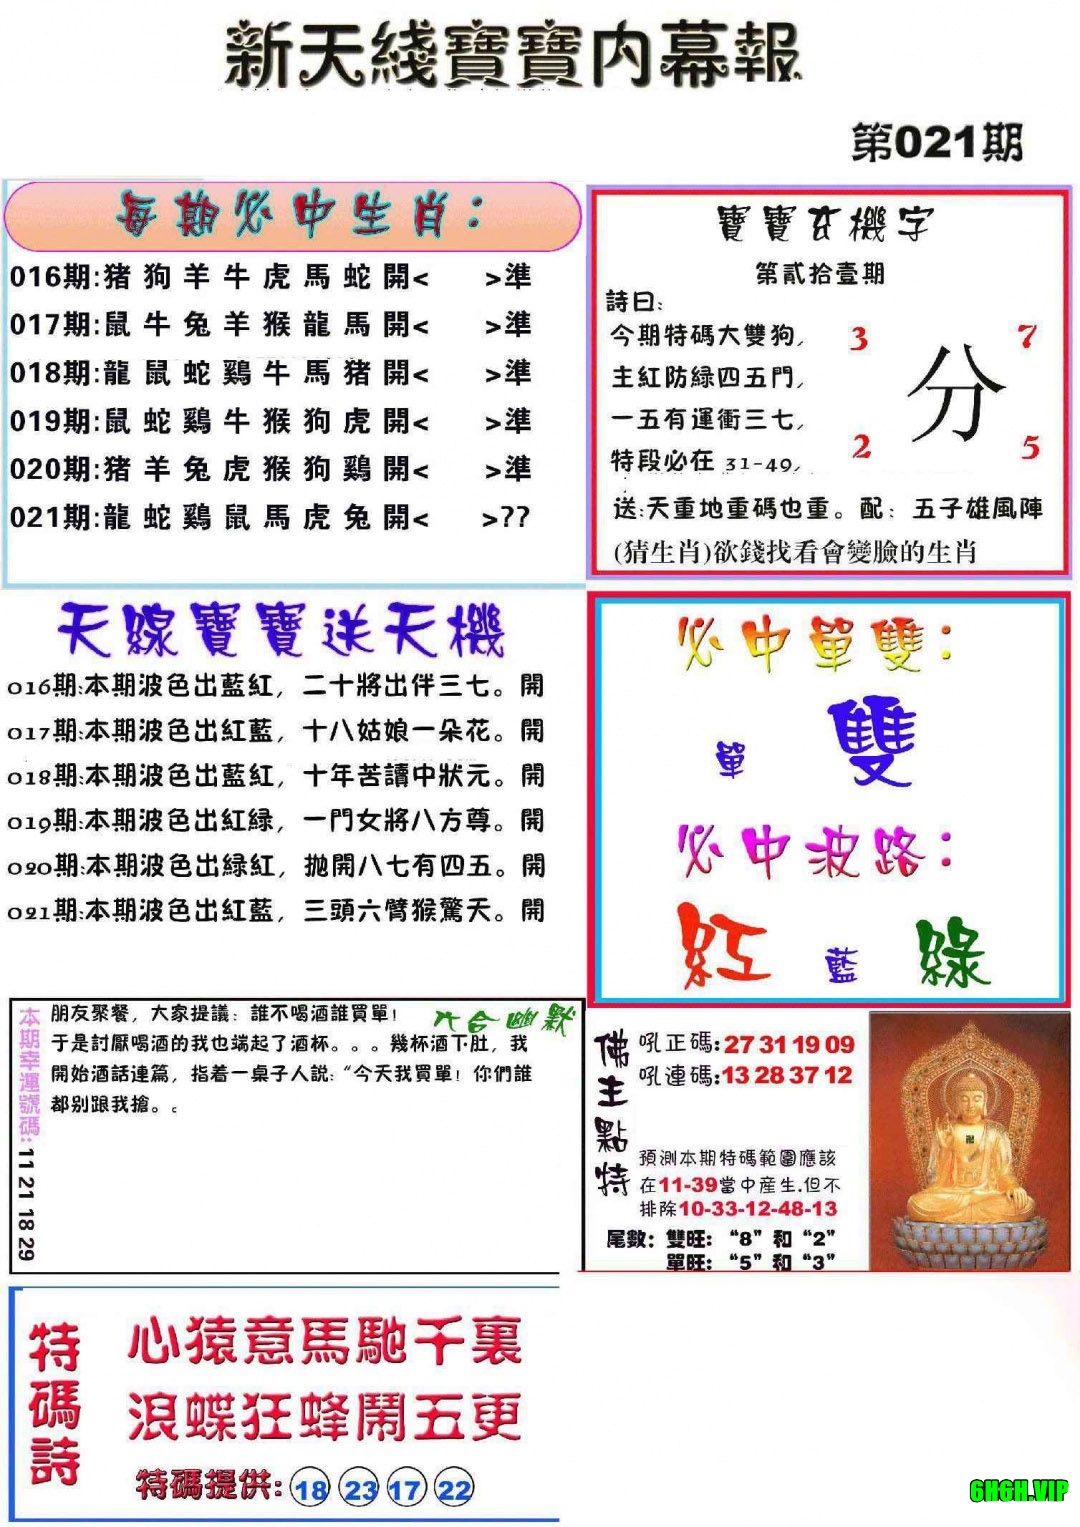 新天綫寶寶内幕報
第021期
每期必中生肖：
016期:猪狗羊牛虎馬蛇開< >準
017期:鼠牛兔羊猴龍馬開< >準
018期:龍鼠蛇鷄牛馬猪開< >準
019期:鼠蛇鷄牛猴狗虎開< >準
020期:猪羊兔虎猴狗鷄開< >準
021期:龍蛇鷄鼠馬虎兔開< >??
寶寶玄機字
第貳拾壹期
詩曰:
今期特碼大雙狗,
主紅防緑四五門,
一五有運衝三七,
特段必在 31-49,
3 7
分
2 5
送:天重地重碼也重。配：五子雄風陣
(猜生肖)欲錢找看會變臉的生肖
天線寶寶送天機
016期:本期波色出藍紅, 二十將出伴三七。開
017期:本期波色出紅藍, 十八姑娘一朵花。開
018期:本期波色出藍紅, 十年苦讀中狀元。開
019期:本期波色出紅緑, 一門女將八方尊。開
020期:本期波色出緑紅, 抛開八七有四五。開
021期:本期波色出紅藍, 三頭六臂猴驚天。開
必中單雙：
單 雙
必中波路：
紅 藍 綠
本期幸運號碼: 11 21 18 29
六合幽默
朋友聚餐, 大家提議: 誰不喝酒誰買單!
于是討厭喝酒的我也端起了酒杯。。。幾杯酒下肚, 我
開始酒話連篇, 指着一桌子人説:“今天我買單! 你們誰
都别跟我搶。。
佛主點特
吼正碼:27 31 19 09
吼連碼:13 28 37 12
預測本期特碼範圍應該
在11-39當中産生.但不
排除10-33-12-48-13
尾數: 雙旺: “8” 和 “2”
單旺: “5” 和 “3”
特碼詩
心猿意馬馳千裏
浪蝶狂蜂鬧五更
特碼提供: 18 23 17 22
6H6H.VIP